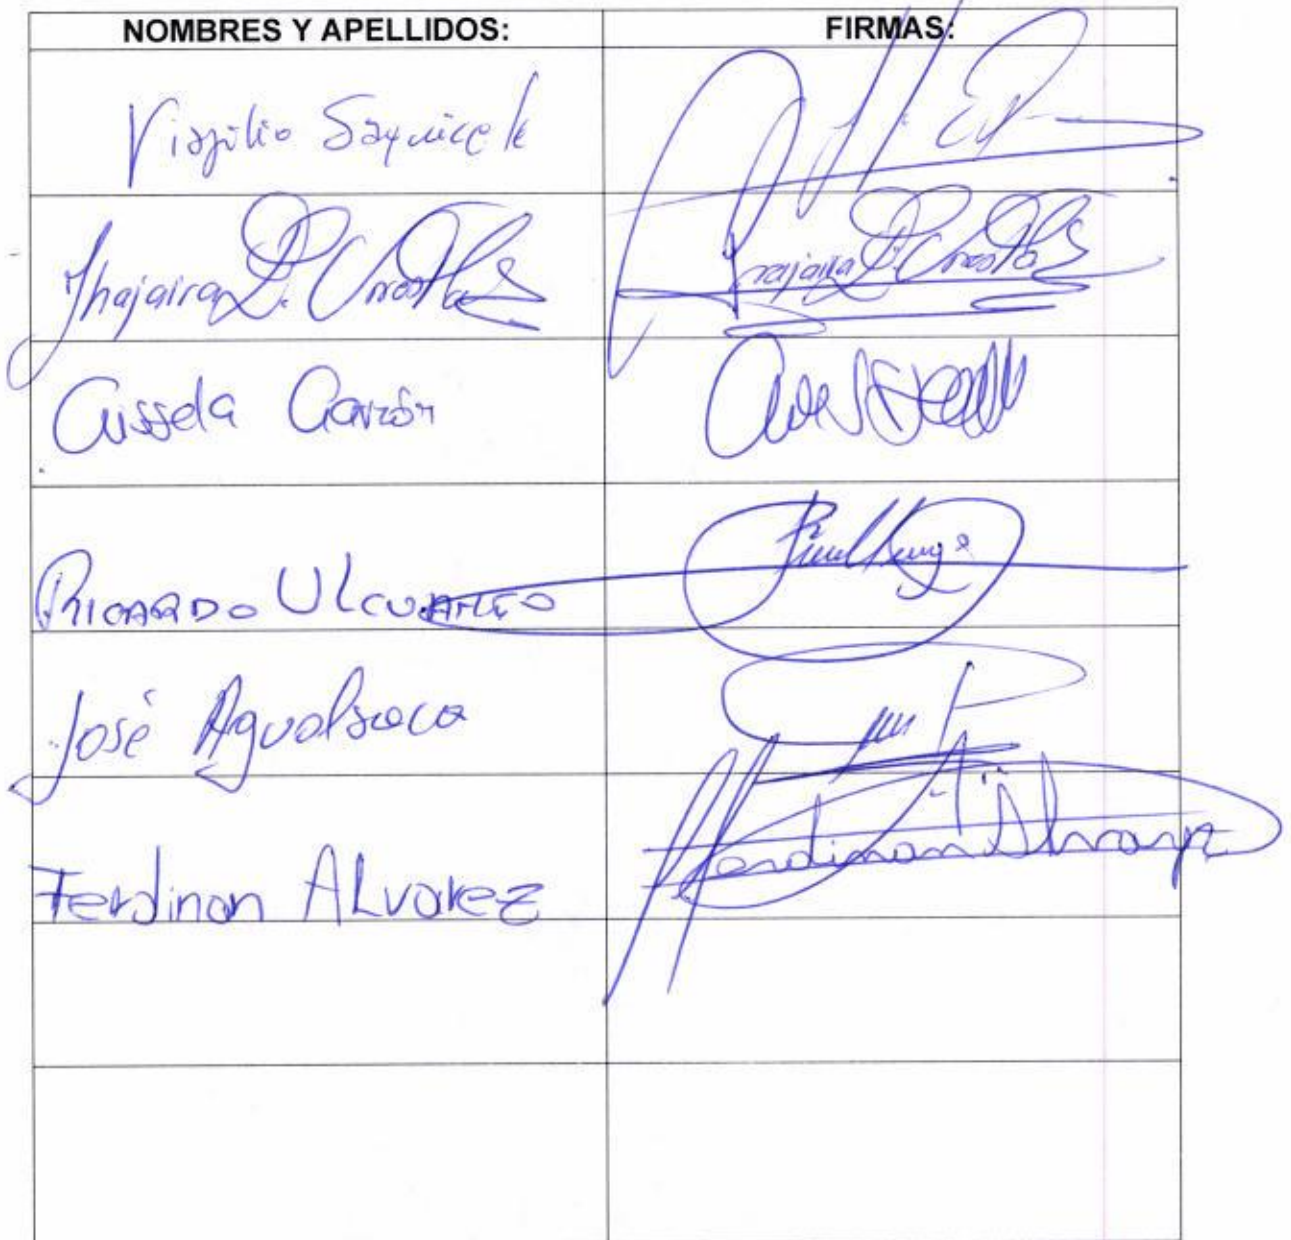 NOMBRES Y APELLIDOS: FIRMAS:
Virgilio Saquicela
Jhajaira Urresta Jhajaira Urresta
Gissela Garzón
RICARDO ULCUANGO
José Agualsaca
Ferdinan ALvarez Ferdinan Alvarez